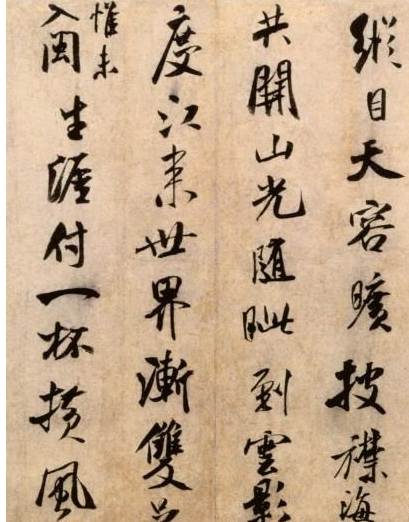 縱目天容曠披襟海
共開山光随眦到雲影
度江来世界漸雙足
惟未
入閩
生涯付一杯横風